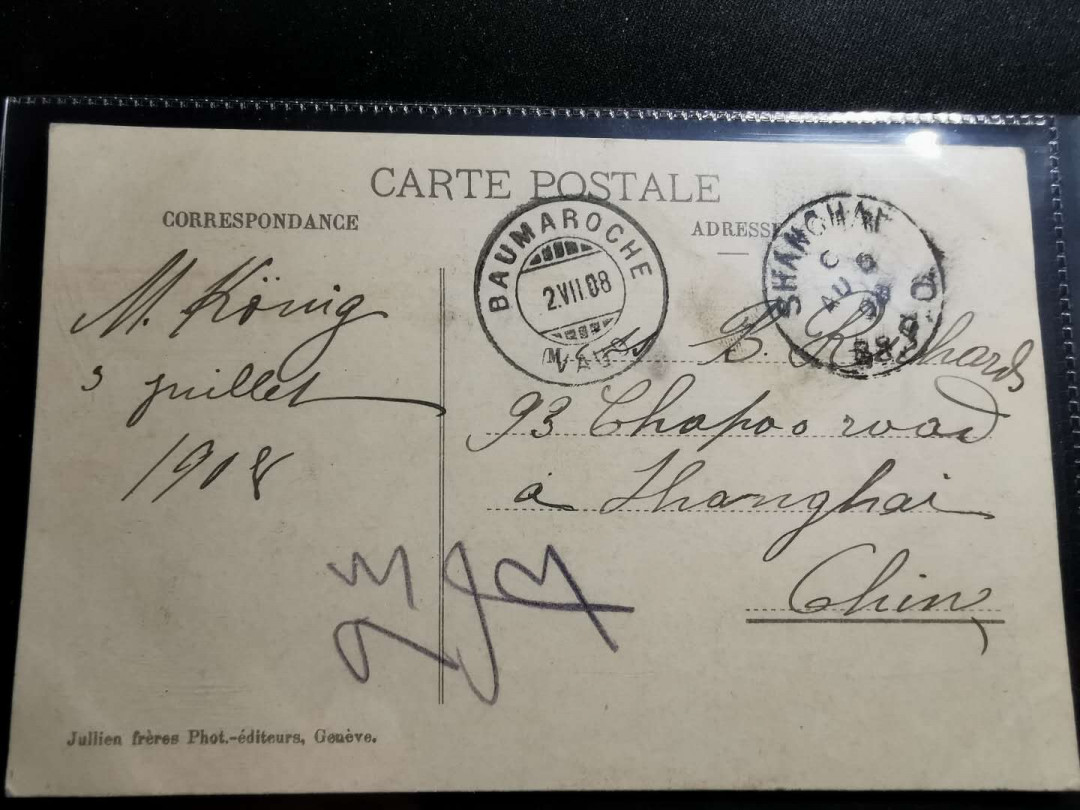 CARTE POSTALE
CORRESPONDANCE
ADRESSE
BAUMAROCHE
2.VII.08
(VAUD)
SHANGHAI
C
AU 6
08
B.P.O.
M. König
3 juillet
1908
B. Richards
93 Chapoo road
à Shanghai
Chine
Jullien frères Phot.-éditeurs, Genève.